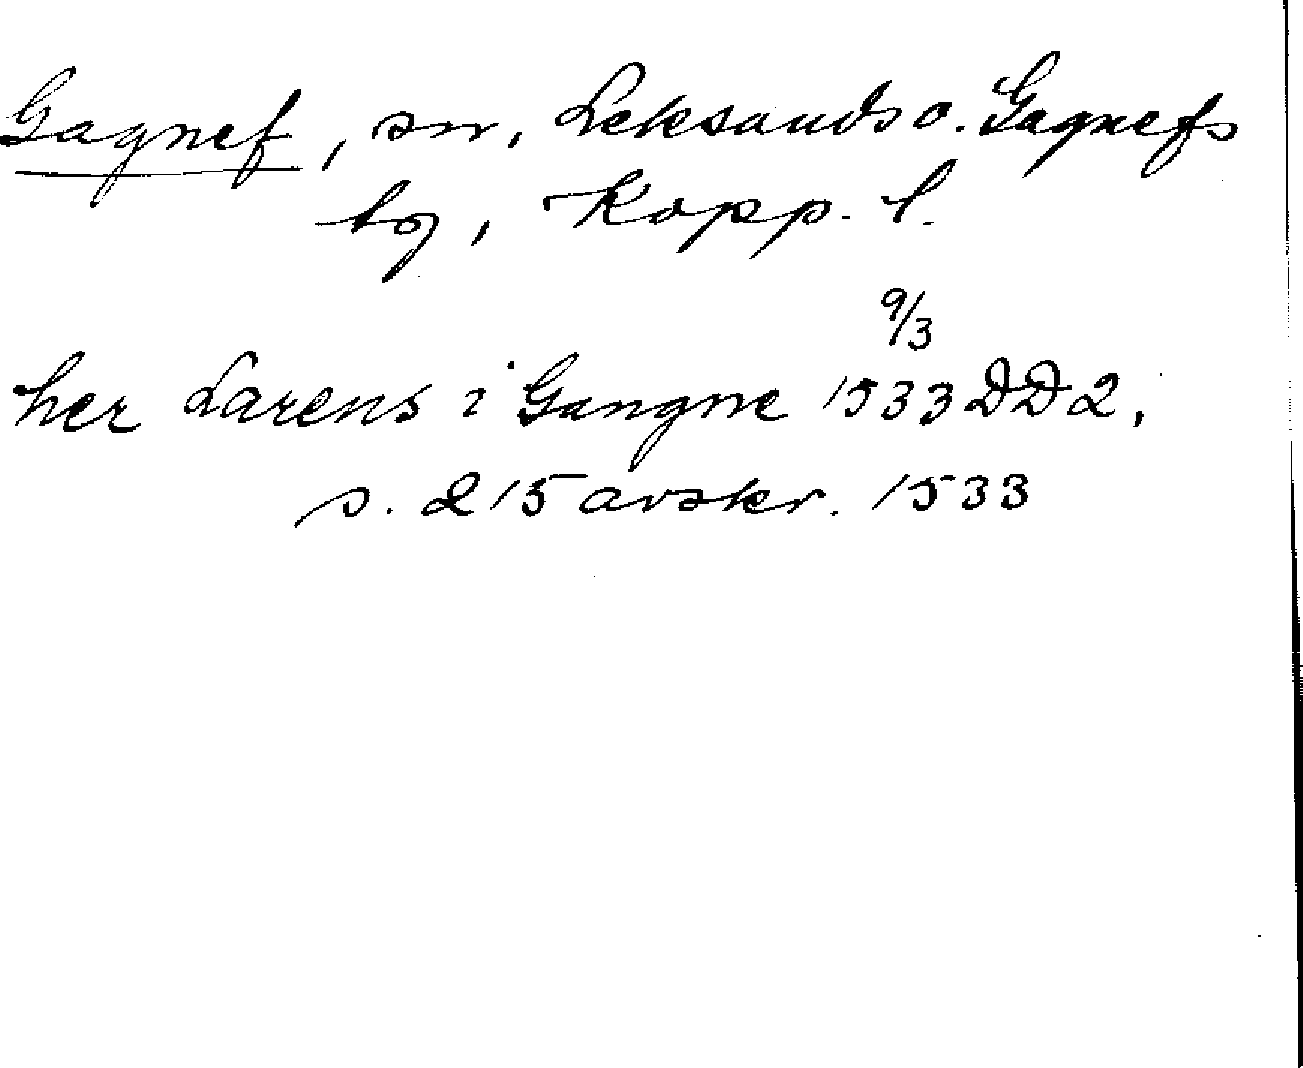 Gagnef, sn, Leksands o. Gagnefs
tg, Kopp. l.
9/3
her Larens i Gangne 1533 DD2,
s. 215 avskr. 1533